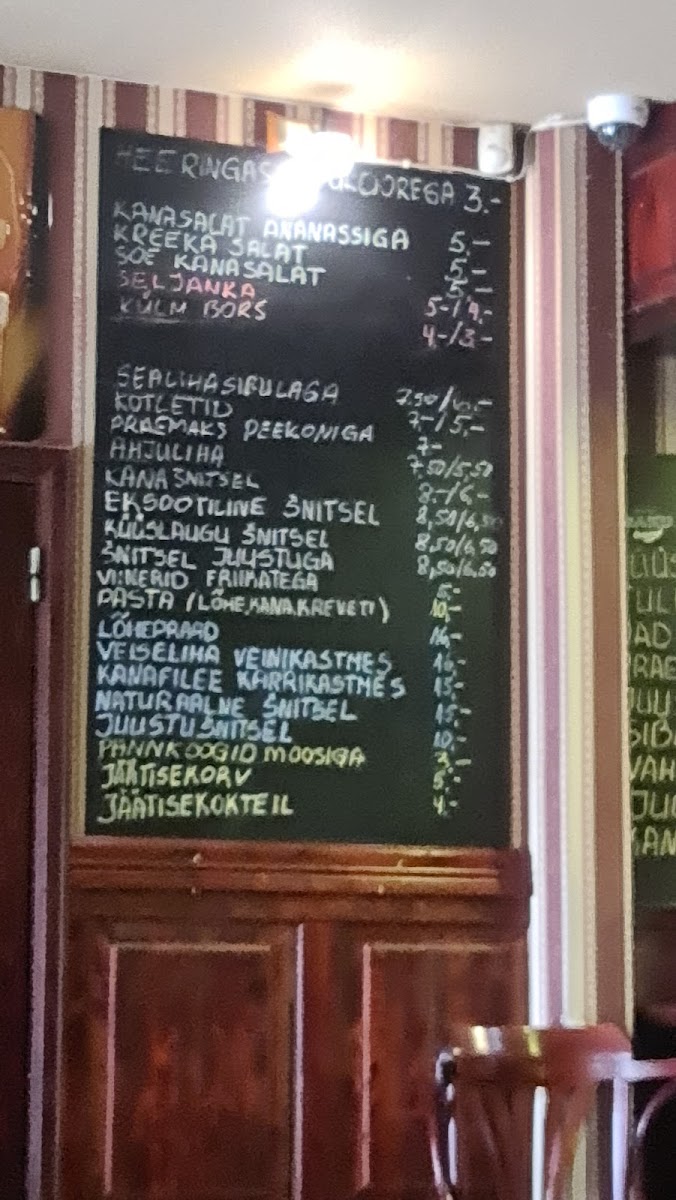 HEERINGAS KOOREGA 3.-
KANASALAT ANANASSIGA 5.-
KREEKA SALAT 5.-
SOE KANASALAT 5.-
SELJANKA 5-/4.-
KÜLM BORŠ 4-/3.-
SEALIHA SIBULAGA 7.50/
KOTLETID 7-/5.-
PRAEMAKS PEEKONIGA 7-
AHJULIHA 7.50/5.50
KANAŠNITSEL 8-/6-
EKSOOTILINE ŠNITSEL 8,50/6,50
KÜÜSLAUGU ŠNITSEL 8,50/6,50
ŠNITSEL JUUSTUGA 8,50/6,50
VIINERID FRIIKATEGA 5.-
PASTA (LÕHE,KANA,KREVETI) 10.-
LÕHEPRAAD 14.-
VEISELIHA VEINIKASTMES 16.-
KANAFILEE KARRIKASTMES 15.-
NATURAALNE ŠNITSEL 15.-
JUUSTUŠNITSEL 10.-
PANNKOOGID MOOSIGA 3.-
JÄÄTISEKORV 5.-
JÄÄTISEKOKTEIL 4.-